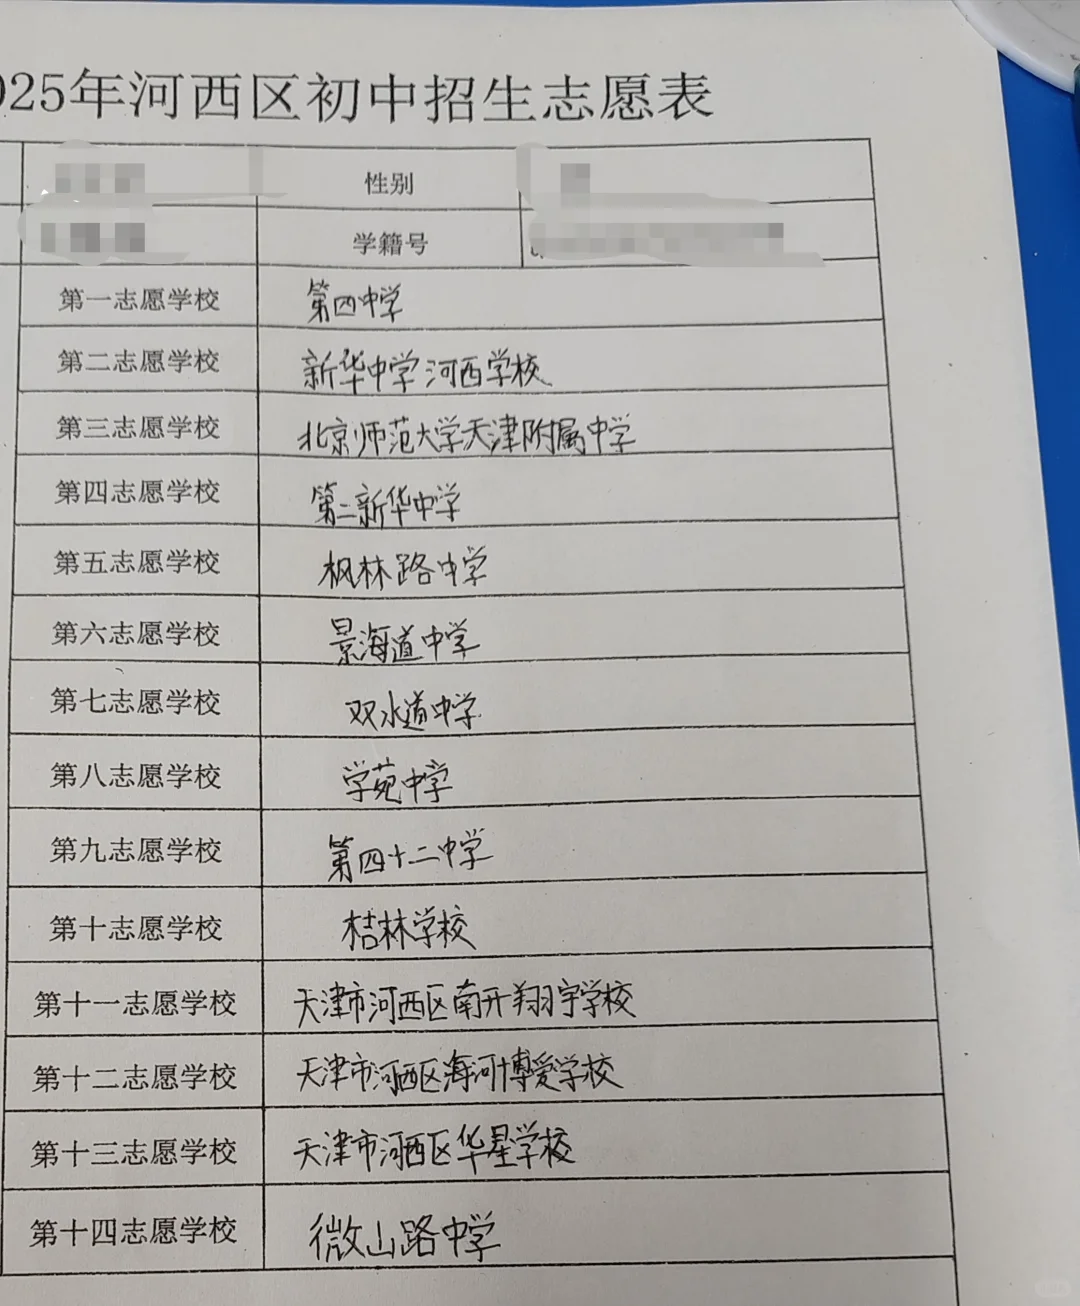 025年河西区初中招生志愿表
性别
学籍号
第一志愿学校 第四中学
第二志愿学校 新华中学河西学校
第三志愿学校 北京师范大学天津附属中学
第四志愿学校 第二新华中学
第五志愿学校 枫林路中学
第六志愿学校 景海道中学
第七志愿学校 双水道中学
第八志愿学校 学苑中学
第九志愿学校 第四十二中学
第十志愿学校 桔林学校
第十一志愿学校 天津市河西区南开翔宇学校
第十二志愿学校 天津市河西区海河博爱学校
第十三志愿学校 天津市河西区华星学校
第十四志愿学校 微山路中学